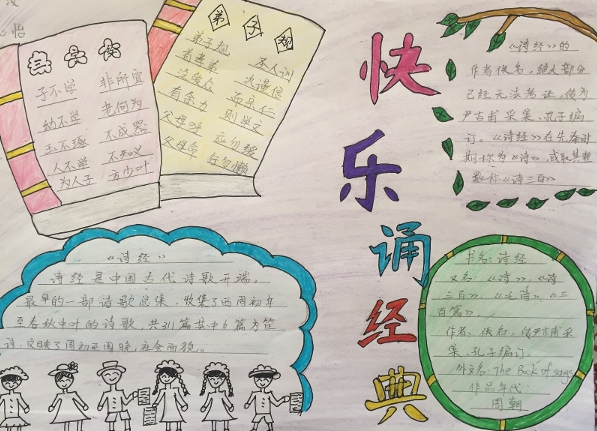 三字经
子不学 非所宜
幼不学 老何为
玉不琢 不成器
人不学 不知义
为人子 方少时
弟子规
弟子规 圣人训
首孝弟 次谨信
泛爱众 而亲仁
有余力 则学文
父母呼 应勿缓
父母命 行勿懒
快
乐
诵
经
典
《诗经》的
作者佚名，绝大部分
已经无法考证，传为
尹吉甫采集、孔子编
订。《诗经》在先秦时
期称为《诗》，或取其整
数称《诗三百》
《诗经》
诗经是中国古代诗歌开端，
最早的一部诗歌总集，收集了西周初年
至春秋中叶的诗歌，共311篇其中6篇为笙
诗，反映了周初至周晚
书名：诗经
又名：《诗》，《诗
三百》，《毛诗》，《三
百篇》，
作者：佚名，传尹吉甫采
集、孔子编订。
外文名：The Book of songs
作品年代：
周朝